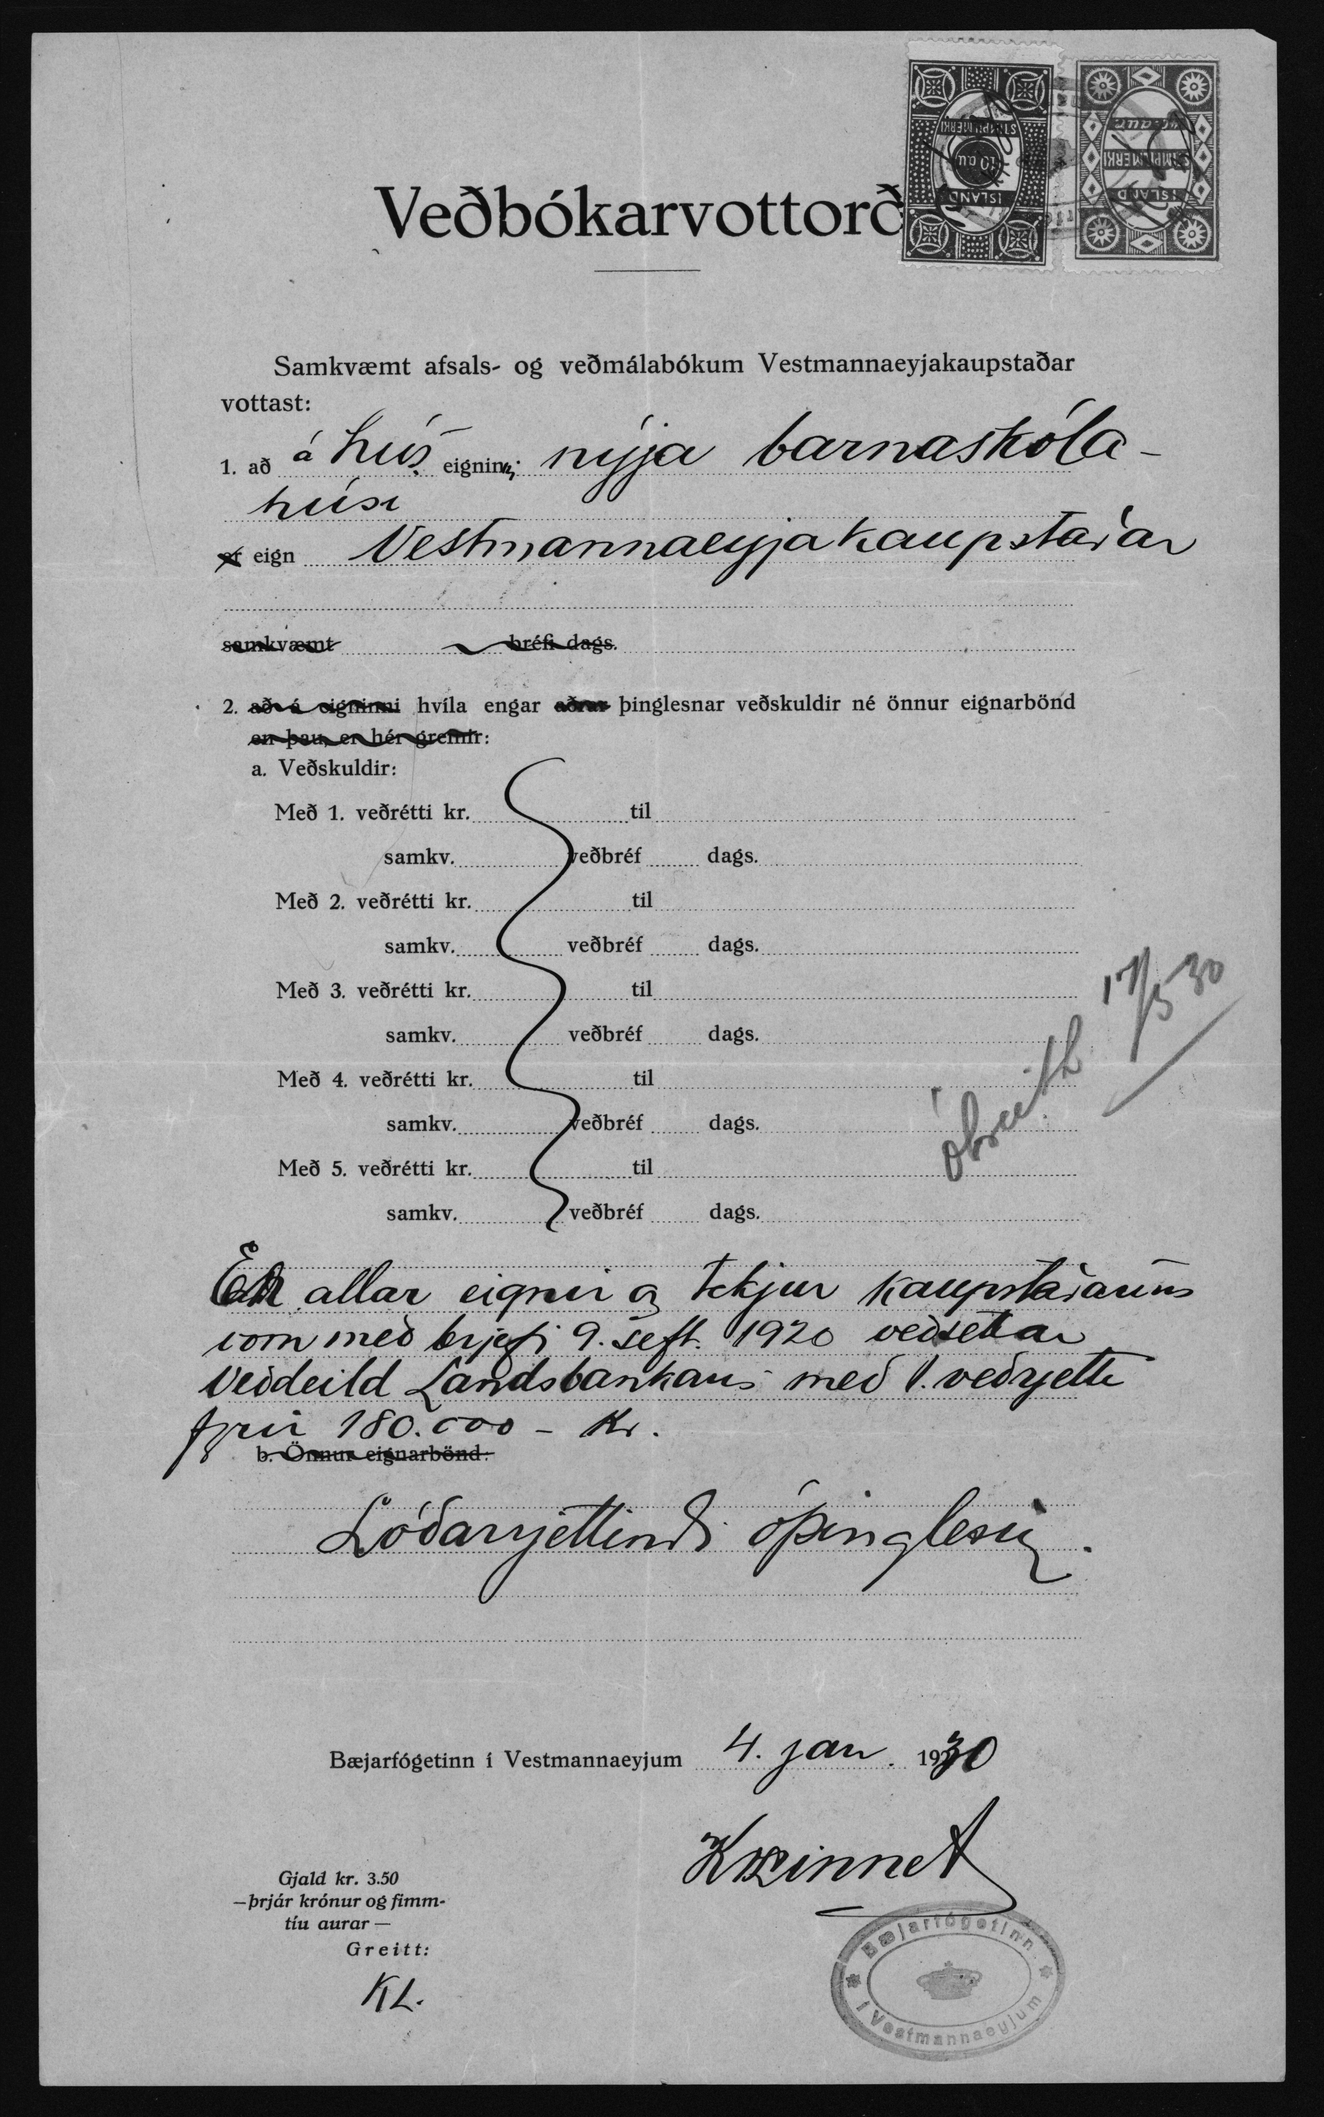 Veðbókarvottorð
ÍSLAND
STIMPILMERKI
10 au
ÍSLAND
STIMPILMERKI
Samkvæmt afsals- og veðmálabókum Vestmannaeyjakaupstaðar
vottast:
1. að á hús eigninni: nýja barnaskóla-
húsi
er eign Vestmannaeyjakaupstaðar
samkvæmt bréfi dags.
2. að á eigninni hvíla engar aðrar þinglesnar veðskuldir né önnur eignarbönd
en þau, er hér greinir:
a. Veðskuldir:
Með 1. veðrétti kr. til
samkv. veðbréf dags.
Með 2. veðrétti kr. til
samkv. veðbréf dags.
Með 3. veðrétti kr. til
samkv. veðbréf dags.
Með 4. veðrétti kr. til
samkv. veðbréf dags.
Með 5. veðrétti kr. til
samkv. veðbréf dags.
óbreitt 17/5 30
En allar eignir og tekjur kaupstaðarins
voru með brjefi 9. sept. 1920 veðsettar
Veðdeild Landsbankans með 1. veðrjetti
fyrir 180.000 - kr.
b. Önnur eignarbönd:
Lóðarrjettindi óþinglesin.
Bæjarfógetinn í Vestmannaeyjum 4. jan. 1930
Kr Linnet
Gjald kr. 3.50
—þrjár krónur og fimm-
tíu aurar —
Greitt:
KL.
Bæjarfógetinn
í Vestmannaeyjum